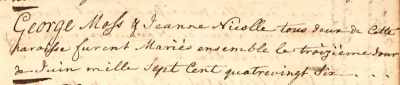 George Mass & Jeanne Nicolle tous deux de Cette
paroisse furent Mariés ensemble le troizième Jour
de Juin mille Sept Cent quatrevingt Six . . .